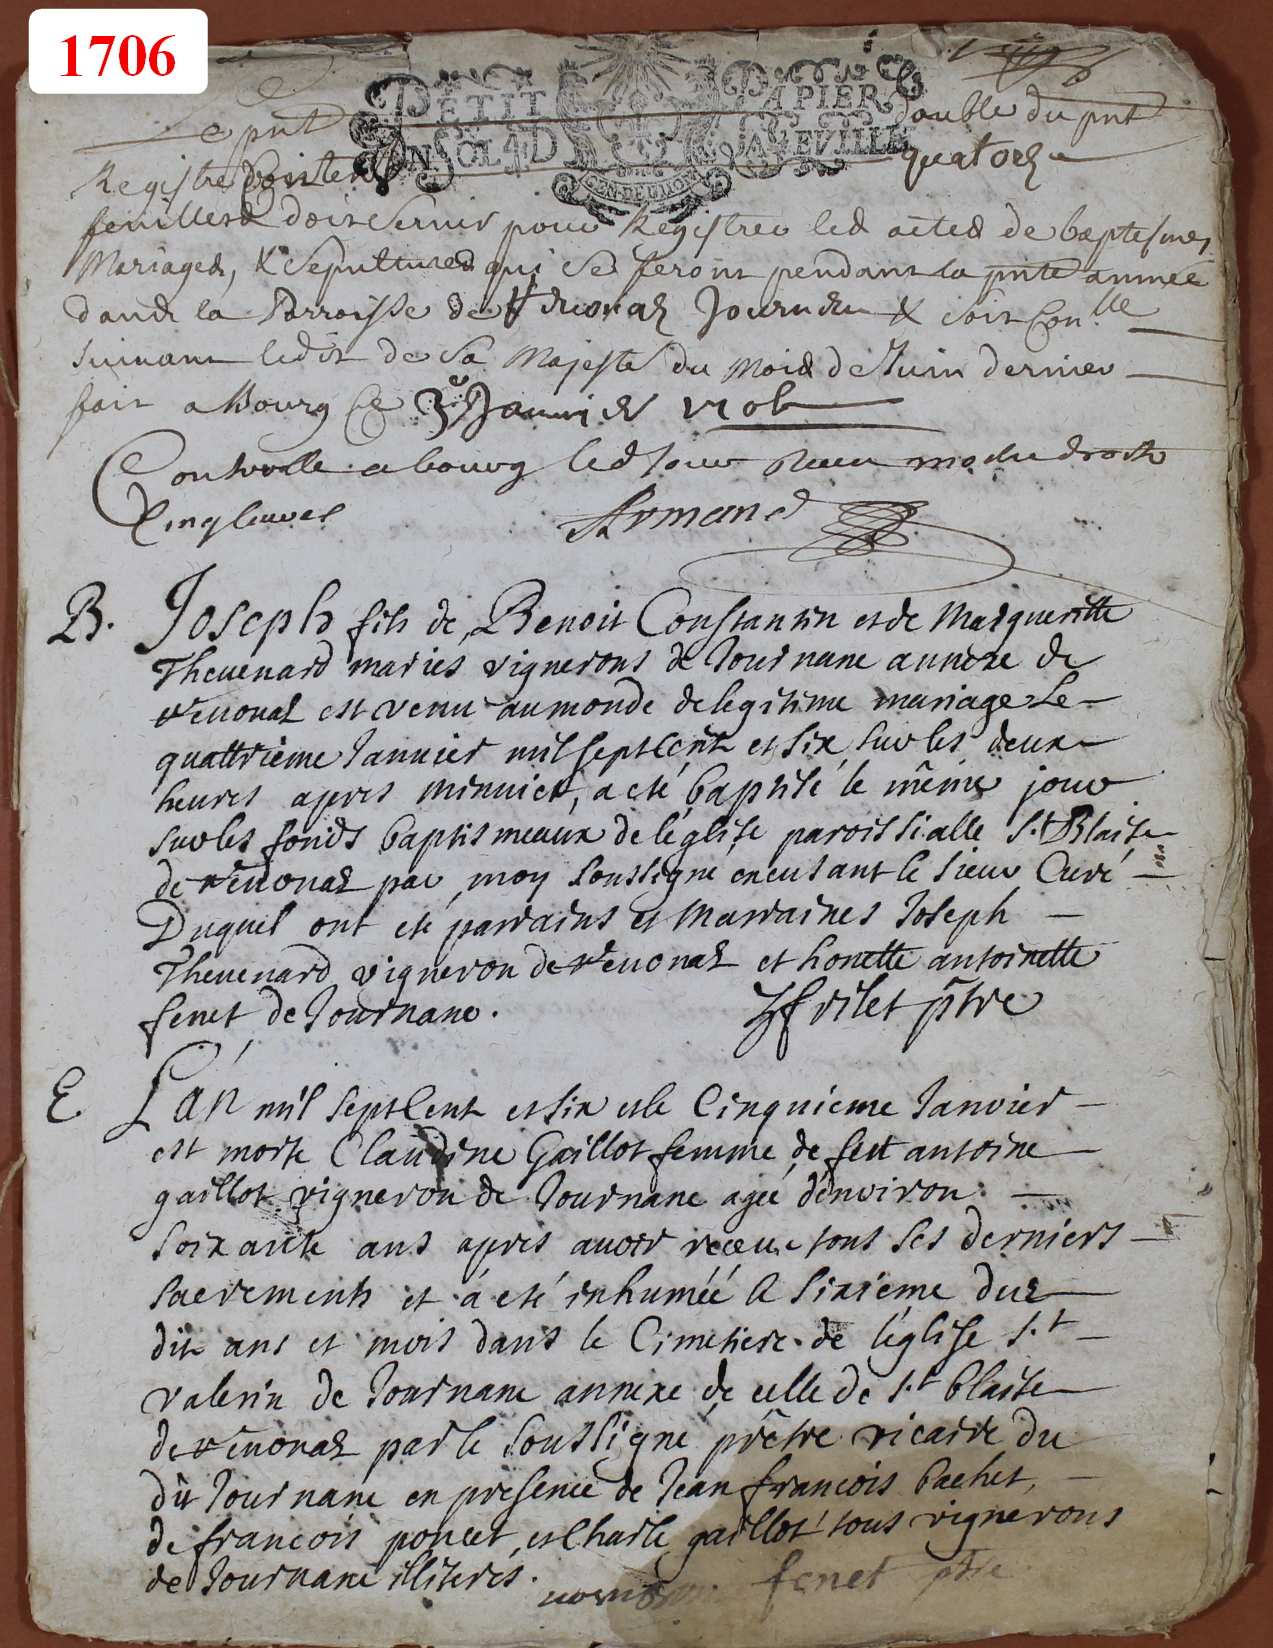 1706
PETIT PAPIER
UN SOL 4 D LA FEUILLE
GEN. DE DIJON
Le pnt double du pnt
Registre Contenant quatorze
feuilletz doit servir pour Registrer les actes de baptesmes
Mariages, & sepultures qui se feront pendant la pnte année
dans la Parroisse de Veuonaz Journan & soit Con.lle
suiuant ledit de Sa Majesté du Mois de Juin dernier
fait a Bourg ce 3e Januier 1706
Controlle a bourg led Jour
Cinq liures Armand
B. Joseph fils de Benoit Constantin et de Margueritte
Theuenard mariés vignerons de Journane annexe de
Veuonaz est venu au monde de legitime mariage le
quattrieme Januier mil sept cent et six sur les deux
heures apres minuict, a eté baptisé le même jour
sur les fonds baptismeaux de léglise paroissialle S.t Blaise
de Veuonaz par moy soussigné encusant le sieur Curé
Duquel ont eté parrains et Marraines Joseph
Theuenard vigneron de Veuonaz et honette antoinette
fenet de Journane. frilet ptre
E L'an mil sept Cent et six et le Cinquieme Janvier
est morte Claudine Gaillot femme de feu antoine
gaillot vigneron de Journane ageé d'environ
soixante ans apres auoir receu tous ses derniers
sacrements et á eté inhumée le sixieme du
dit ans et mois dans le Cimetiere de léglise S.t
Valerin de Journane annexe de celle de S.t blaise
de Veuonaz par le soussigné prêtre vicaire du
dit Journane en presence de Jean francois bachet,
de francois poncet, et Charle gaillot tous vignerons
de Journane illiterés. fenet ptre